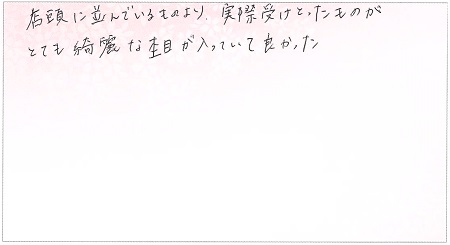 店頭に並んでいるものより、実際受けとったものが
とても綺麗な杢目が入っていて良かった